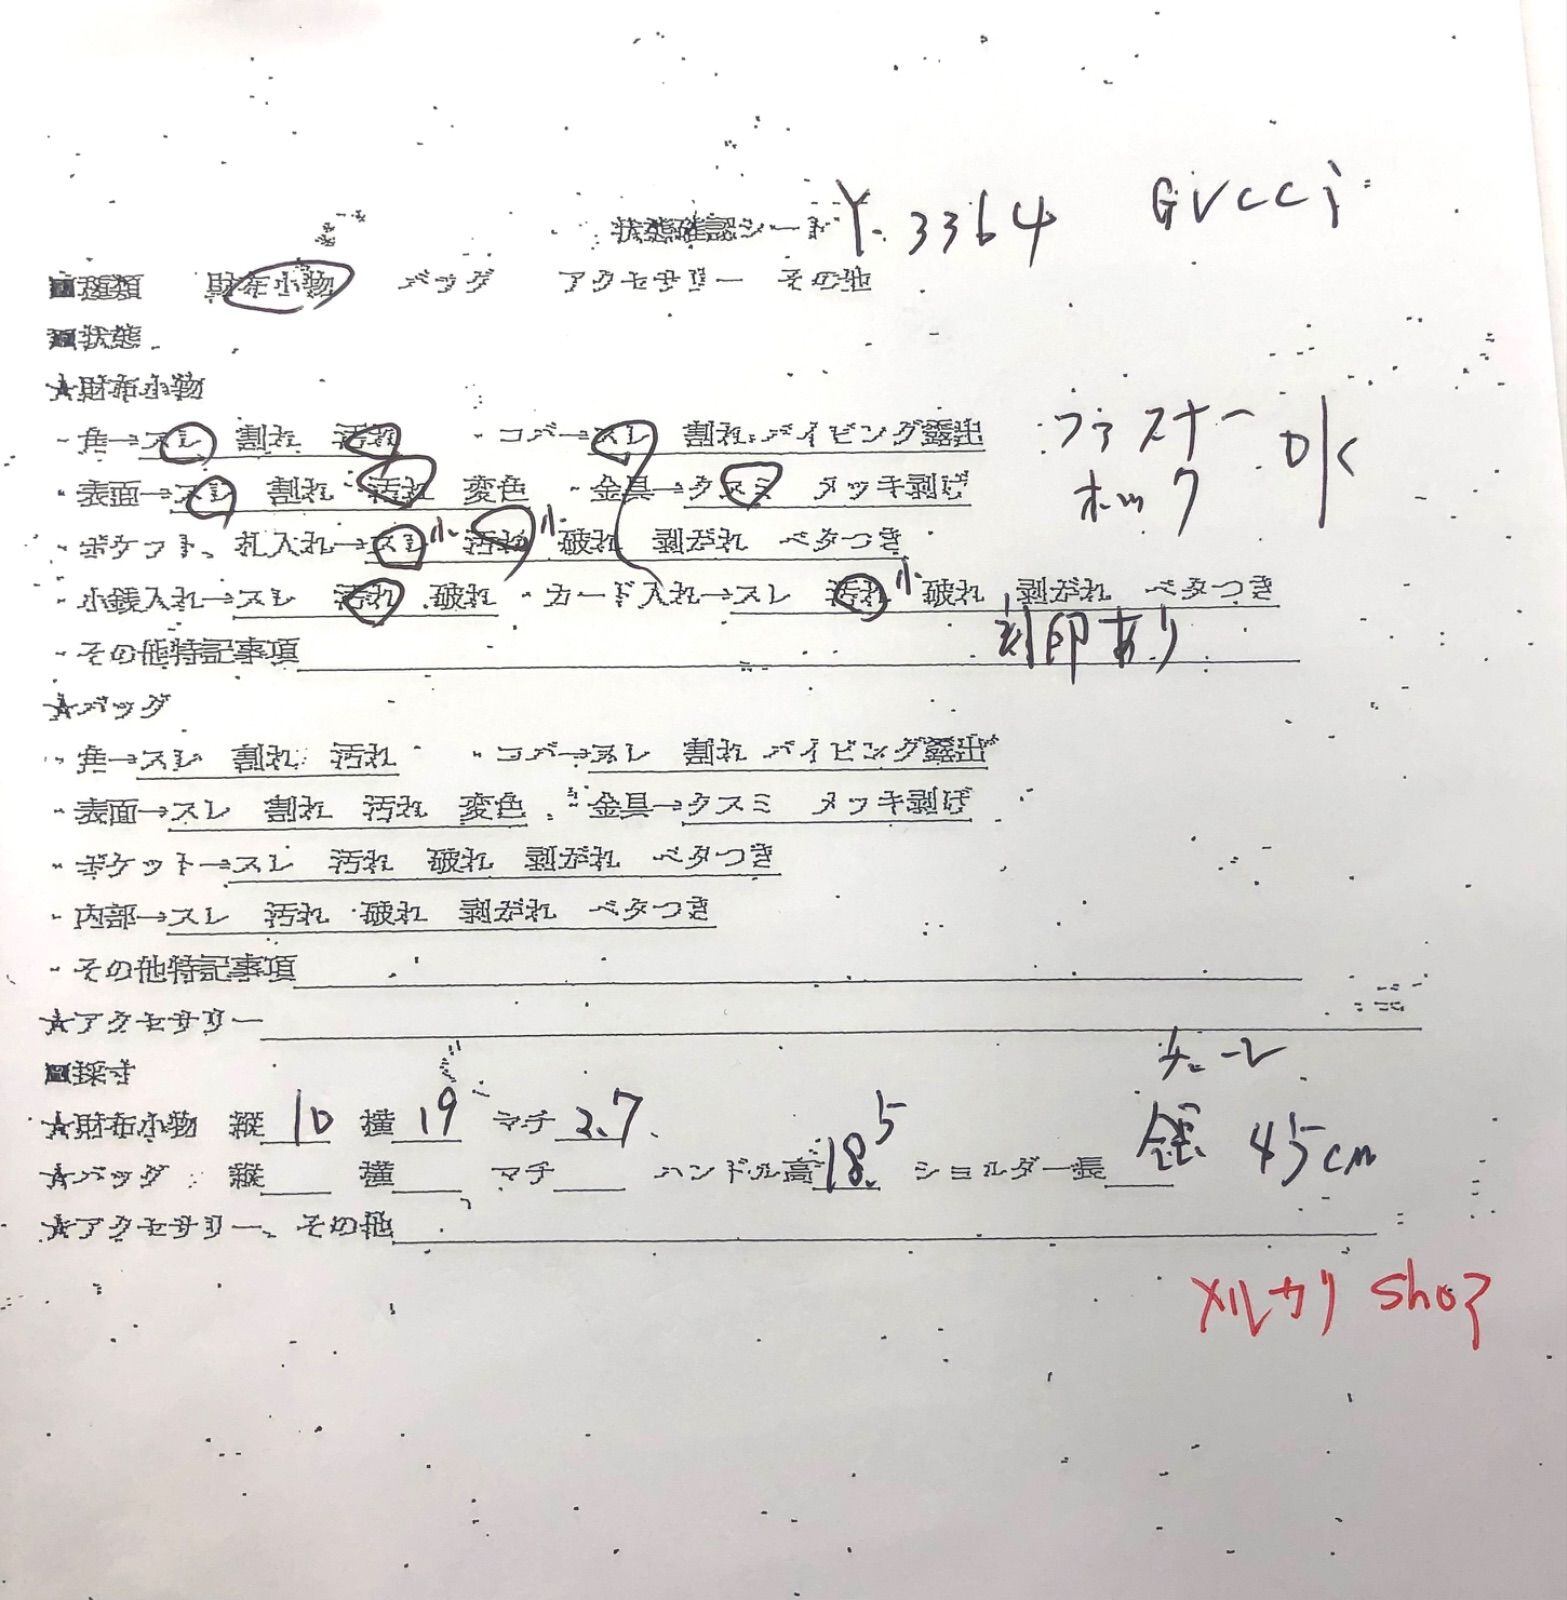 状態確認シート Y. 3364 GUCCI
■種類 財布小物 バッグ アクセサリー その他
■状態
★財布小物
・角→スレ 割れ 汚れ ・コバ→スレ 割れ パイピング露出 ファスナー OK
・表面→スレ 割れ 汚れ 変色 ・金具→クスミ メッキ剥げ ホック
・ポケット、札入れ→スレ 小 汚れ 小 破れ 剥がれ ベタつき
・小銭入れ→スレ 汚れ 破れ ・カード入れ→スレ 汚れ 小 破れ 剥がれ ベタつき
・その他特記事項 刻印あり
★バッグ
・角→スレ 割れ 汚れ ・コバ→スレ 割れ パイピング露出
・表面→スレ 割れ 汚れ 変色 ・金具→クスミ メッキ剥げ
・ポケット→スレ 汚れ 破れ 剥がれ ベタつき
・内部→スレ 汚れ 破れ 剥がれ ベタつき
・その他特記事項
★アクセサリー
■採寸
★財布小物 縦 10 横 19 マチ 2.7
★バッグ 縦 横 マチ ハンドル高 18.5 ショルダー長 45cm
★アクセサリー、その他
メルカリ Shop